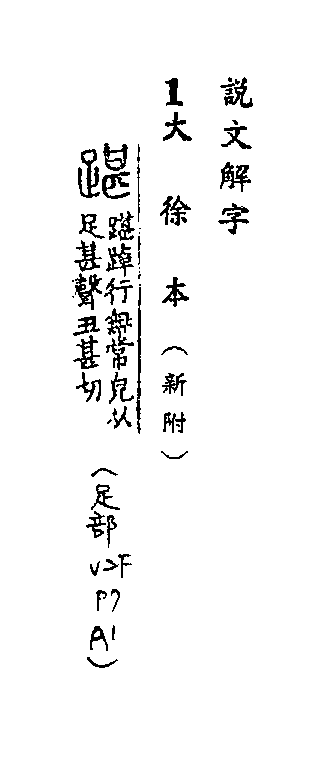 説文解字
1大徐本（新附）
踸 踸踔行無常皃从
足甚聲丑甚切
（足部
V2F
P7
A1）